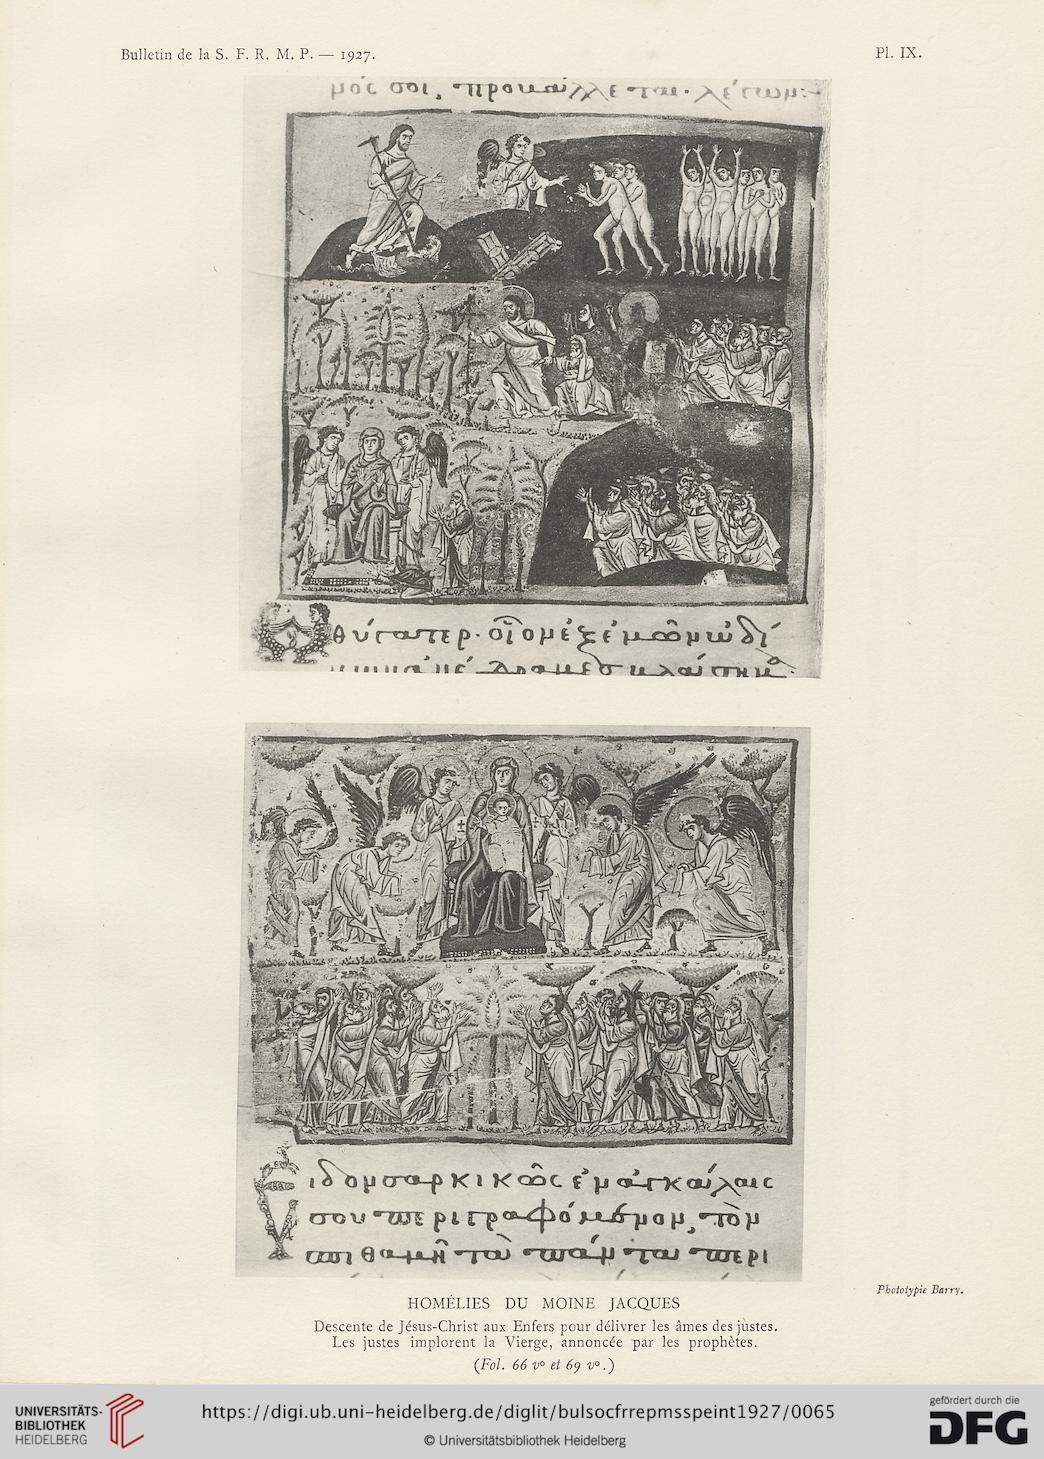 Bulletin de la S. F. R. M. P. — 1927.
Pl. IX.
θύγατερ· οἷον ἐξ ἐμῶν ὠδί
ιδον σαρκικῶς ἐν ἀγκάλαις
σου περιγραφόμενον, τὸν
Phototypie Barry.
HOMÉLIES DU MOINE JACQUES
Descente de Jésus-Christ aux Enfers pour délivrer les âmes des justes.
Les justes implorent la Vierge, annoncée par les prophètes.
(Fol. 66 vº et 69 vº.)
UNIVERSITÄTS-
BIBLIOTHEK
HEIDELBERG
https://digi.ub.uni-heidelberg.de/diglit/bulsocfrrepmsspeint1927/0065
© Universitätsbibliothek Heidelberg
gefördert durch die
DFG